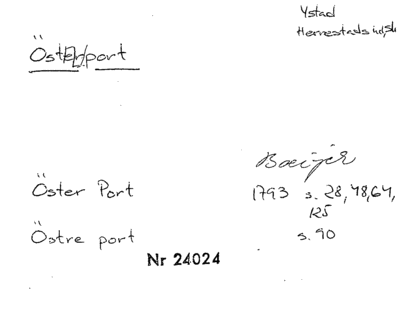 Ystad
Herrestads hd, Sk
Österport
Boeijer
Öster Port 1793 s. 28, 48, 64,
125
Östre port s. 90
Nr 24024